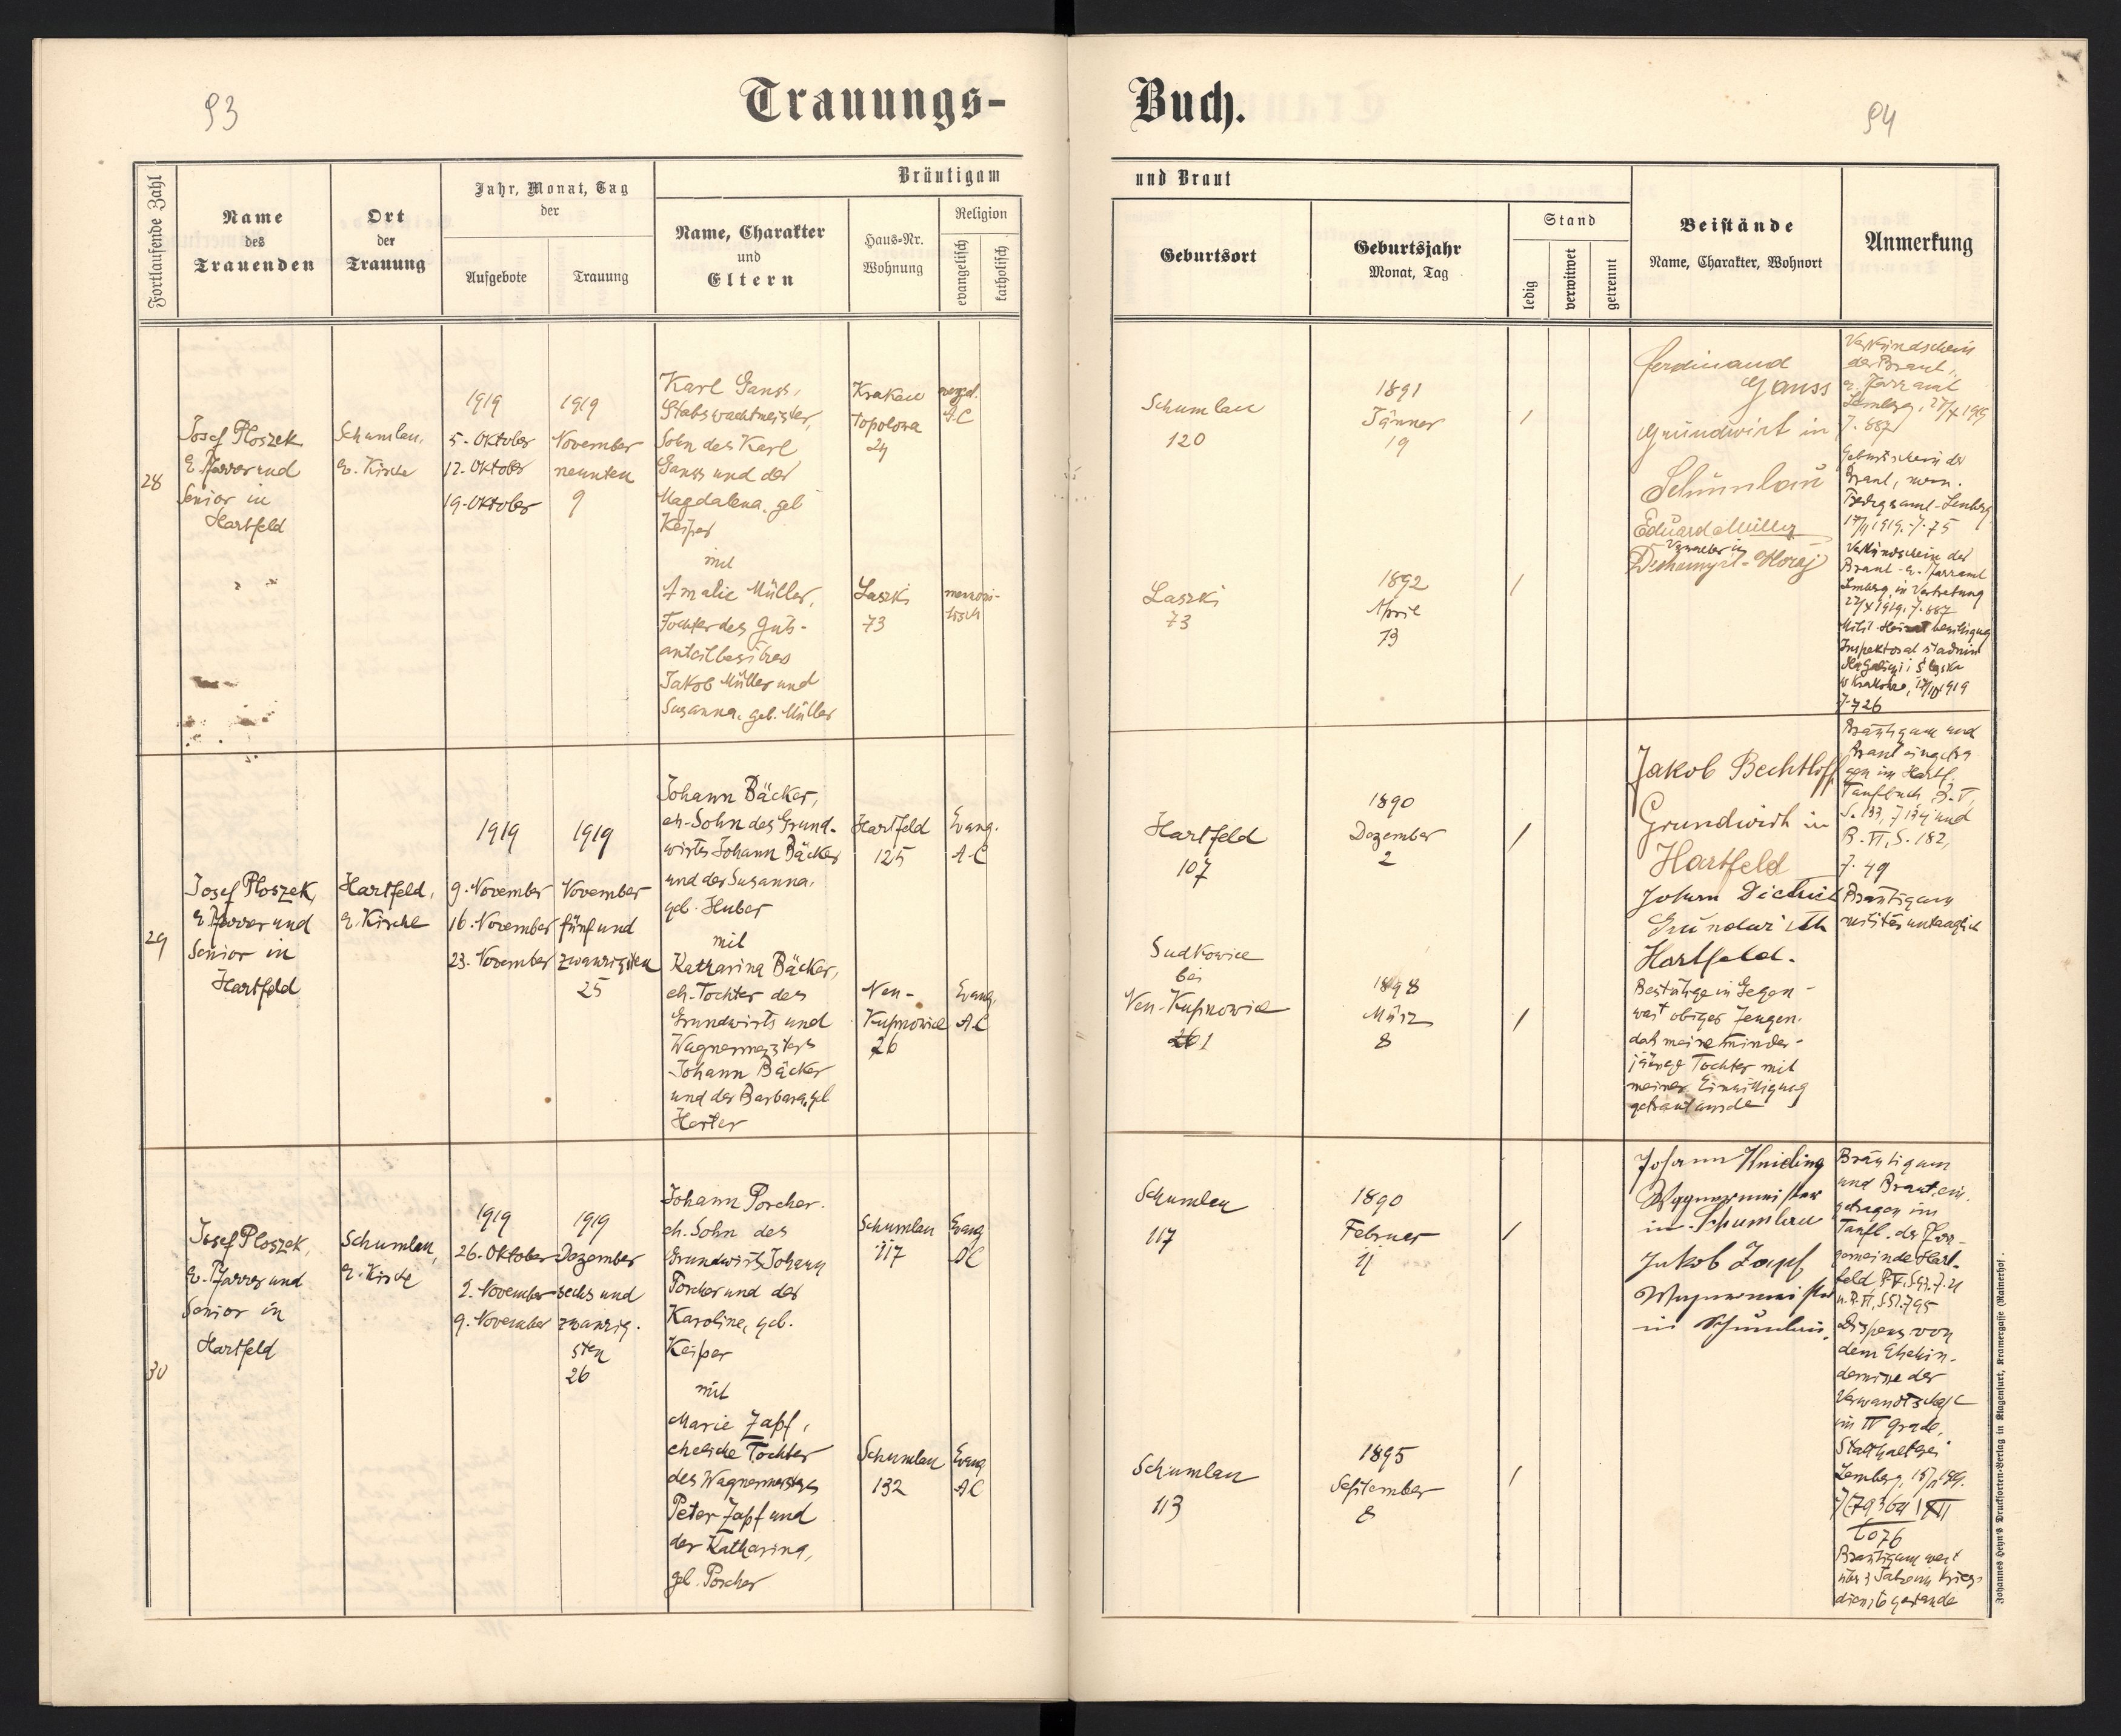 93
Trauungs-
Fortlaufende Zahl
Name
des
Trauenden
Ort
der
Trauung
Jahr, Monat, Tag
der
Aufgebote
Trauung
Bräutigam
Name, Charakter
und
Eltern
Haus-Nr.
Wohnung
Religion
evangelisch
katholisch
28
Josef Ploszek
e. Pfarrer und
Senior in
Hartfeld
Schumlau,
e. Kirche
1919
5. Oktober
12. Oktober
19. Oktober
1919
November
neunten
9
Karl Gauss,
Stabswachtmeister,
Sohn des Karl
Gauss und der
Magdalena, geb
Keiper
mit
Amalie Müller,
Tochter des Guts-
anteilbesitzers
Jakob Müller und
Susanna, geb. Müller
Krakau
Topolowa
24
evgel.
A.C
Laszki
73
mennoni-
tisch
29
Josef Ploszek,
e. Pfarrer und
Senior in
Hartfeld
Hartfeld,
e. Kirche
1919
9. November
16. November
23. November
1919
November
fünf und
zwanzigsten
25
Johann Bäcker,
eh. Sohn des Grund-
wirts Johann Bäcker
und der Susanna,
geb. Huber
mit
Katharina Bäcker,
eh. Tochter des
Grundwirts und
Wagnermeisters
Johann Bäcker
und der Barbara, gb
Herter
Hartfeld
125
Evang.
A.C
Neu-
Kupnowice
26
Evang.
A.C
30
Josef Ploszek,
e. Pfarrer und
Senior in
Hartfeld
Schumlau,
e. Kirche
1919
26. Oktober
2. November
9. November
1919
Dezember
sechs und
zwanzig-
sten
26
Johann Porcher.
eh. Sohn des
Grundwirts Johann
Porcher und der
Karoline, geb.
Keiper
mit
Marie Zapf,
eheliche Tochter
des Wagnermeisters
Peter Zapf und
der Katharina,
geb. Porcher
Schumlau
117
Evang
AC
Schumlau
132
Evang
AC
Buch.
94
und Braut
Geburtsort
Geburtsjahr
Monat, Tag
Stand
ledig
verwitwet
getrennt
Beistände
Name, Charakter, Wohnort
Anmerkung
Schumlau
120
1891
Jänner
19
/
Laszki
73
1892
April
13
/
Ferdinand
Gauss
Grundwirt in
Schumlau
Eduard Müller
Verwalter in
Verkündschein
der Braut,
e. Pfarramt
Lemberg, 27/X 1919
J. 887
Geburtschein der
Braut, menn.
1919. J. 75
Verkündschein der
Braut - e. Pfarramt
Lemberg, in Vertretung
1919. J. 887
w Krakowie,
J. 726
Hartfeld
107
1890
Dezember
2
/
Sudkowice
bei
Neu-Kupnowice
1
1898
März
8
/
Jakob Bechtloff
Grundwirth in
Hartfeld
Johann Dietrich
Grundwirth
Hartfeld.
Bestätige in Gegen-
wart obiger Zeugen,
daß meine minder-
jährige Tochter mit
meiner Einwilligung
getraut wurde
Bräutigam und
Braut eingetra
gen im Hartf.
Taufbuch B. V,
S. 133, J 134 und
B. VI, S. 182,
J. 49
Bräutigam
militäruntauglich
Schumlau
117
1890
Februar
11
/
Schumlau
113
1895
September
8
/
Johann Kniding
Wagnermeister
in Schumlau
Jakob Zapf
Wagnermeister
in Schumlau.
Bräutigam
und Braut ein-
getragen im
Taufb. der Pfarr-
gemeinde Hart-
feld
Dispens von
dem Ehehin-
dernisse der
Verwandtschaft
im IV Grade,
Statthalterei
Lemberg,
6076
Bräutigam war
über 3 Jahre im Kriegs-
dienste gestanden
Johannes Heyn's Drucksorten-Verlag in Klagenfurt, Kramergasse (Rainerhof).